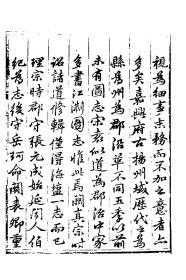 視為細事末務而不加之意者亦
多矣嘉興府古揚州域歷代之為
縣為州為郡沿革不同五季以前
未有圖志宋袁似道為郡治中家
多書江淛圖志惟此為闕真宗時
詔諸道修輯僅得海塩一志而已
理宗時郡守張元成始延聞人伯
紀為志後守岳珂命關表卿重